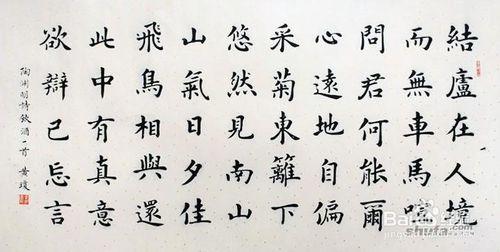 結廬在人境
而無車馬喧
問君何能爾
心遠地自偏
采菊東籬下
悠然見南山
山氣日夕佳
飛鳥相與還
此中有真意
欲辯已忘言
陶渊明詩飲酒一首
shufa.com